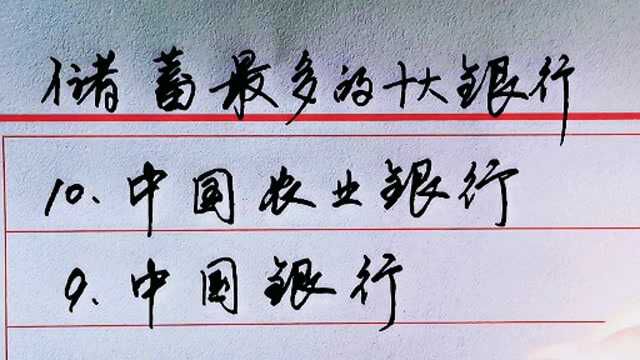 储蓄最多的十大银行
10、中国农业银行
9、中国银行